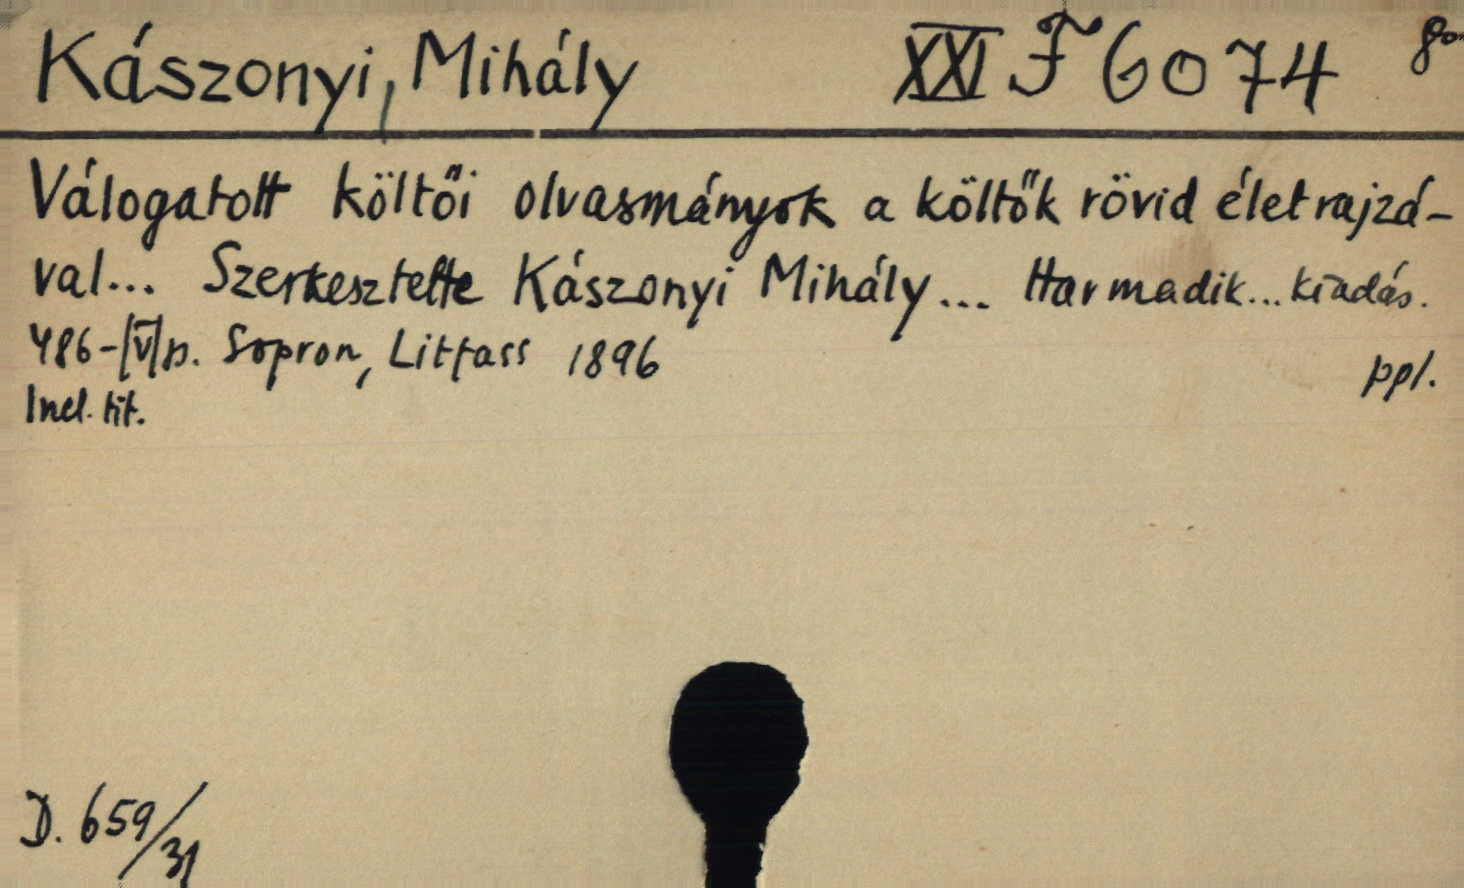 Kászonyi, Mihály XXI F 6074 8o
Válogatott költői olvasmányok a költők rövid életrajzá-
val... Szerkesztette Kászonyi Mihály... Harmadik... kiadás.
486-[V] p. Sopron, Litfass 1896
ppl.
Incl. tit.
D. 659/31